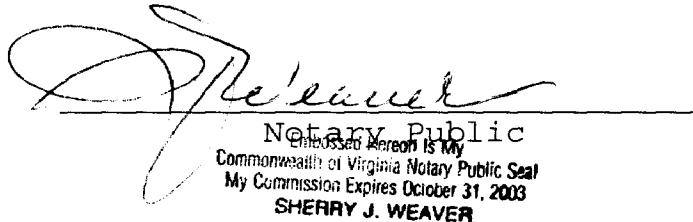 S J Weaver
Notary Public
Embossed Hereon Is My
Commonwealth of Virginia Notary Public Seal
My Commission Expires October 31, 2003
SHERRY J. WEAVER